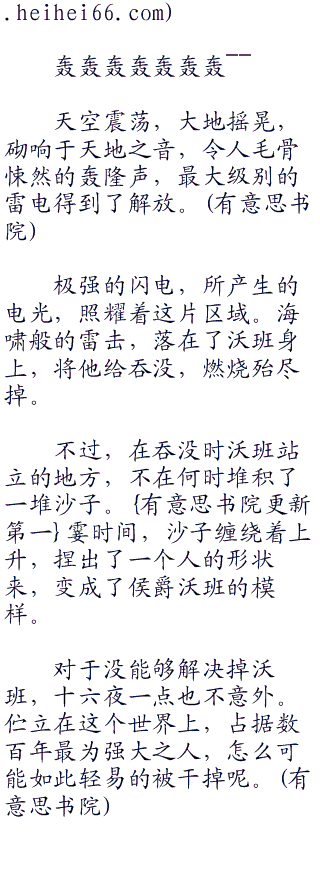 .heihei66.com)
轰轰轰轰轰轰轰¯¯
天空震荡，大地摇晃，
砌响于天地之音，令人毛骨
悚然的轰隆声，最大级别的
雷电得到了解放。(有意思书
院)
极强的闪电，所产生的
电光，照耀着这片区域。海
啸般的雷击，落在了沃班身
上，将他给吞没，燃烧殆尽
掉。
不过，在吞没时沃班站
立的地方，不在何时堆积了
一堆沙子。{有意思书院更新
第一}霎时间，沙子缠绕着上
升，捏出了一个人的形状
来，变成了侯爵沃班的模
样。
对于没能够解决掉沃
班，十六夜一点也不意外。
伫立在这个世界上，占据数
百年最为强大之人，怎么可
能如此轻易的被干掉呢。(有
意思书院)